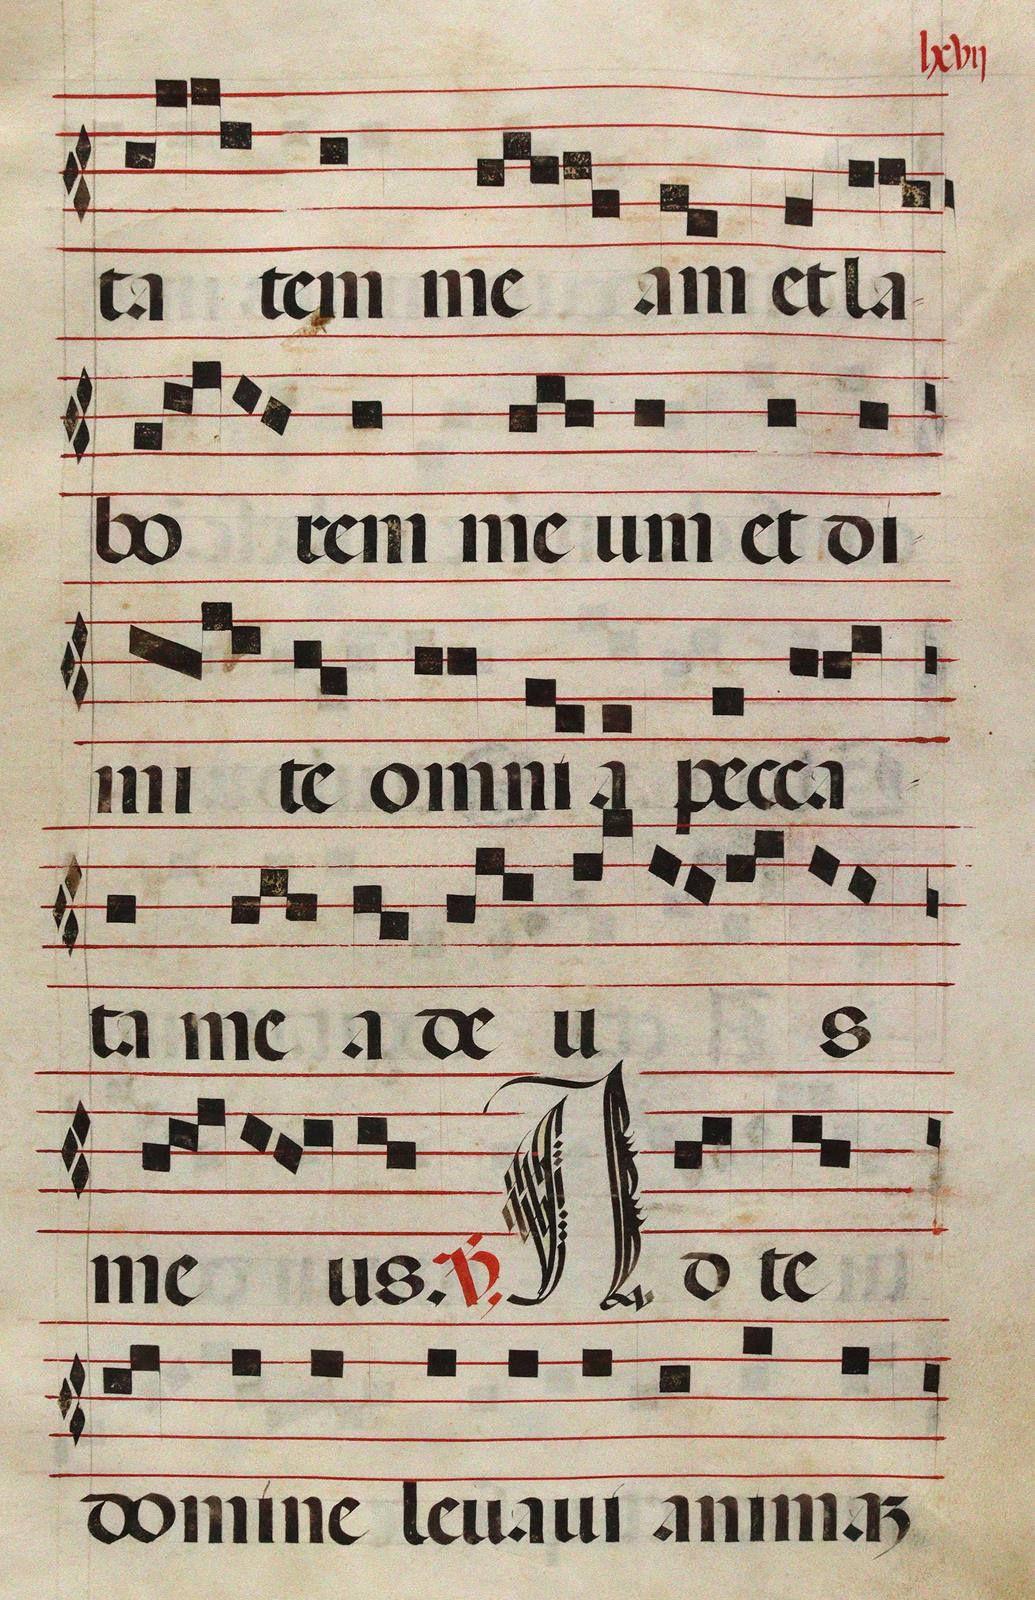 lxvij
ta tem me am et la
bo rem me um et di
mi te omni a pecca
ta me a de u s
me us. ℟. A d te
domine levavi animaꝫ